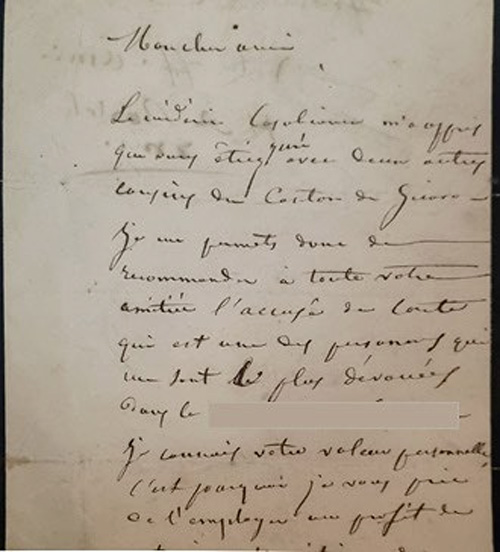 Mon cher ami
Le m'a appris
que vous étiez juré avec deux autres
du Canton de
Je me permets donc de
recommander à toute votre
amitié l'accusé de
qui est une des personnes qui
me sont le plus dévouées
Dans le
Je connais votre valeur personnelle,
C'est pourquoi je vous prie
de l'employer au profit de